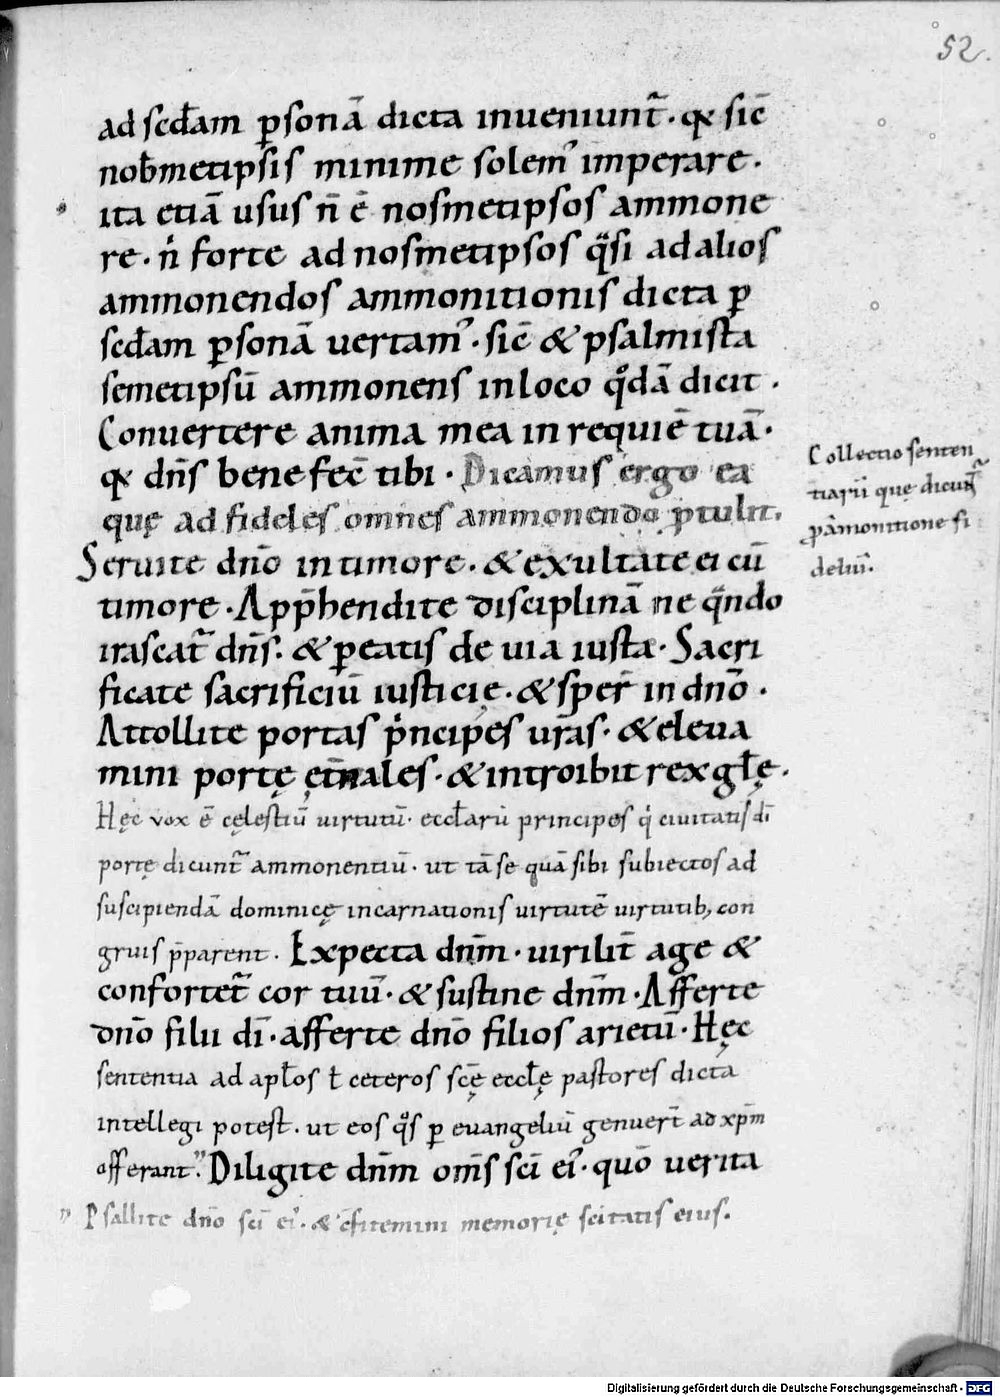 52.
ad scđam ꝑsonā dicta inueniunt᷑. qꝛ sic̄
nob̄metipsis minime solem᾽ imperare.
ita etiā usus n̄ ē nosmetipsos ammone
re. n̄ forte ad nosmetipsos qͣsi ad alios
ammonendos ammonitionis dicta ꝑ
scđam ꝑsonā uertam᾽. sic̄ & psalmista
semetipsū ammonens in loco qͦdā dicit.
Conuertere anima mea in requiē tuā.
qꝛ dn̄s benefec̄ tibi. Dicamus ergo ea
quę ad fideles omnes ammonendo ꝓtulit.
Seruite dn̄o in timore. & exultate ei cū
timore. App̄hendite disciplinā ne qͣndo
irascat᷑ dn̄s. & ꝑeatis de uia iusta. Sacri
ficate sacrificiū iusticię. & sper̄ in dn̄o.
Attollite portas pͥncipes ur̄as. & eleua
mini portę ęt̄nales. & introibit rex gl̄ę.
Hęc vox ē cęlestiū uirtutū. eccl̄arū principes qͥ ciuitatis dī
portę dicunt᷑ ammonentiū. ut tā se quā sibi subiectos ad
suscipiendā dominicę incarnationis uirtutē uirtutib; con
gruis p̄parent. Expecta dn̄m. uirilit̄ age &
confortet᷑ cor tuū. & sustine dn̄m. Afferte
dn̄o filii dī. afferte dn̄o filios arietū. Hęc
sententia ad apl̄os ł ceteros scę̄ eccl̄ę pastores dicta
intellegi potest. ut eos qͦs ꝑ euangeliū genuer̄t ad xp̄m
afferant. Diligite dn̄m om̄s scī ei᾽. quō uerita
Psallite dn̄o scī ei᾽. & c̄fitemini memorię scītatis eius.
Collectio senten
tiarū quę dicunt᷑
ꝓ āmonitione fi
deliū.
Digitalisierung gefördert durch die Deutsche Forschungsgemeinschaft - DFG